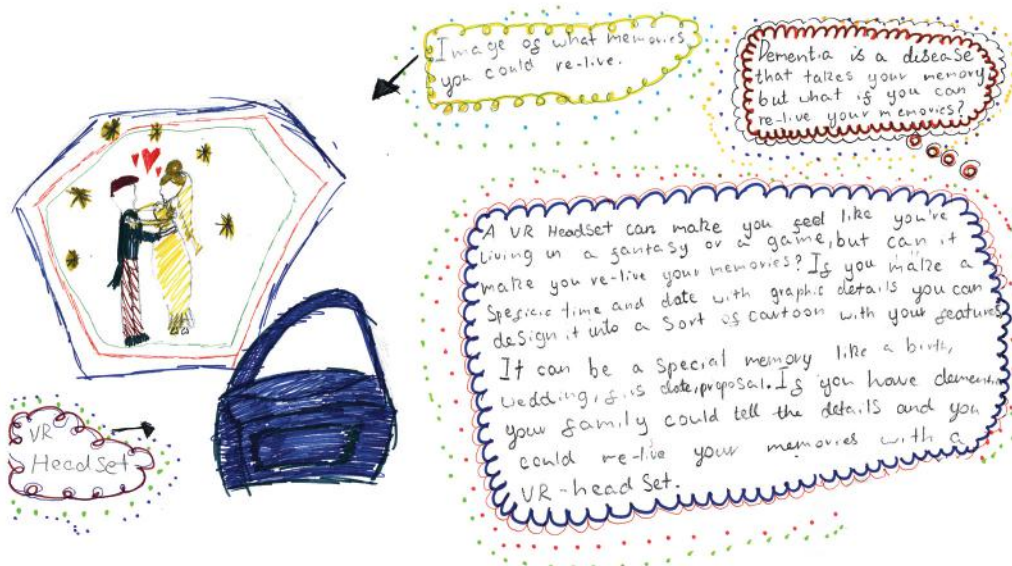 Image of what memories
you could re-live.
Dementia is a disease
that takes your memory,
but what if you can
re-live your memories?
A VR Headset can make you feel like you're
living in a fantasy or a game, but can it
make you re-live your memories? If you make a
Spesific time and date with graphic details you can
design it into a sort of cartoon with your features
It can be a special memory like a birth,
wedding, date, proposal. If you have dementia
your family could tell the details and you
could re-live your memories with a
VR-headset.
VR
Headset